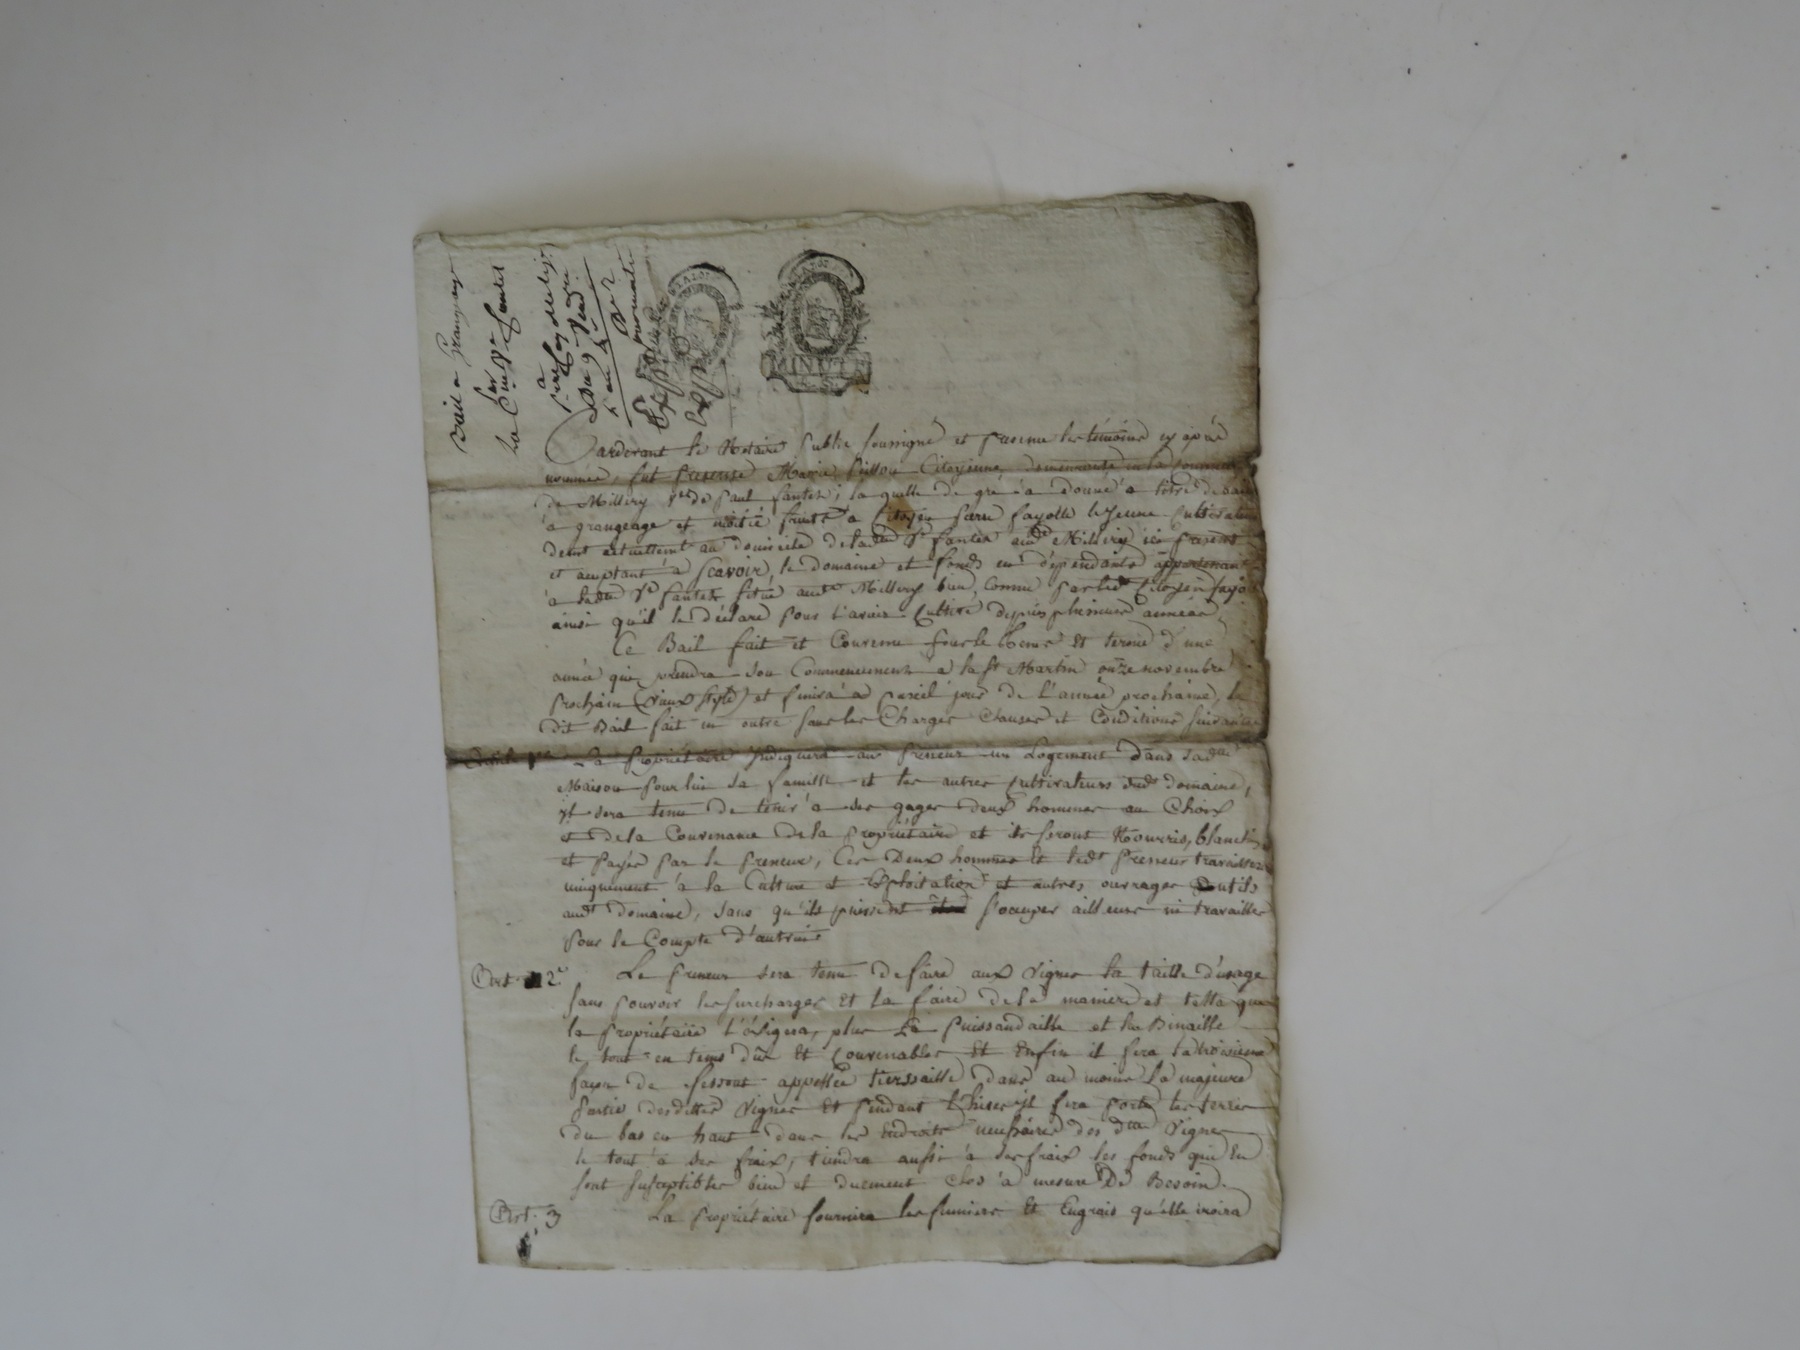 Bail a Grangeage
par
La C.ne V.e fantet
a
Pardevant le Notaire Public soussigné et presence les témoins cy après
nommés, fut presente Marie Citoyenne, demeurante en la Commune
de Millery v.e de Paul fantet, la quelle de gré a donné a titre de bail
a grangeage et moitié fruits a Citoyen pierre fayolle le Jeune Cultivateur
dem.t actuellem.t au domicile de lad.te V.e fantet aud. Millery ici present
et acceptant a scavoir, le domaine et fonds en dépendants appartenant
a lad.te V.e fantet situé aud.t Millery bien connu par led.t Citoyen fayolle
ainsi qu'il le déclare pour l'avoir Cultivé depuis plusieurs années,
Ce Bail fait et Convenu pour le tems et terme d'une
année qui prendra son Commencement a la St Martin onze novembre
prochain (vieux style) et finira a pareil jour de l'année prochaine, le
dit Bail fait en outre sous les Charges Clauses et Conditions suivantes
La Propriétaire Indiquera au Preneur un Logement dans sad.te
Maison pour lui sa famille et les autres Cultivateurs dud.t domaine,
il sera tenu de tenir a ses gages deux hommes au Choix
et de la Convenance de la propriétaire et ils seront Nourris, blanchis
et payés par le preneur, Ces Deux hommes Et led.t preneur travailleront
uniquement a la Culture et Exploitation et autres ouvrages
aud.t domaine, sans qu'ils puissent s'occuper ailleurs ni travailler
pour le Compte d'autrui
Art. 2.e Le preneur sera tenu De faire aux vignes la taille d'usage
sans pouvoir les surcharger Et la faire de la maniere et telle que
la propriétaire plus et la Binaille
le tout en tems dû Et Convenables Et Enfin il fera la troisieme
façon de fessour appellée tierssaille dans au moins la majeure
partie desdittes vignes Et pendant l'hiver il fera porter les terres
du bas en haut dans les Endroits necessaires des d.tes vignes
le tout a ses fraix, tiendra aussi a ses fraix les fonds qui En
sont susceptibles bien et duement clos a mesure De Besoin.
Art. 3 La propriétaire fournira les fumiers Et Engrais qu'elle